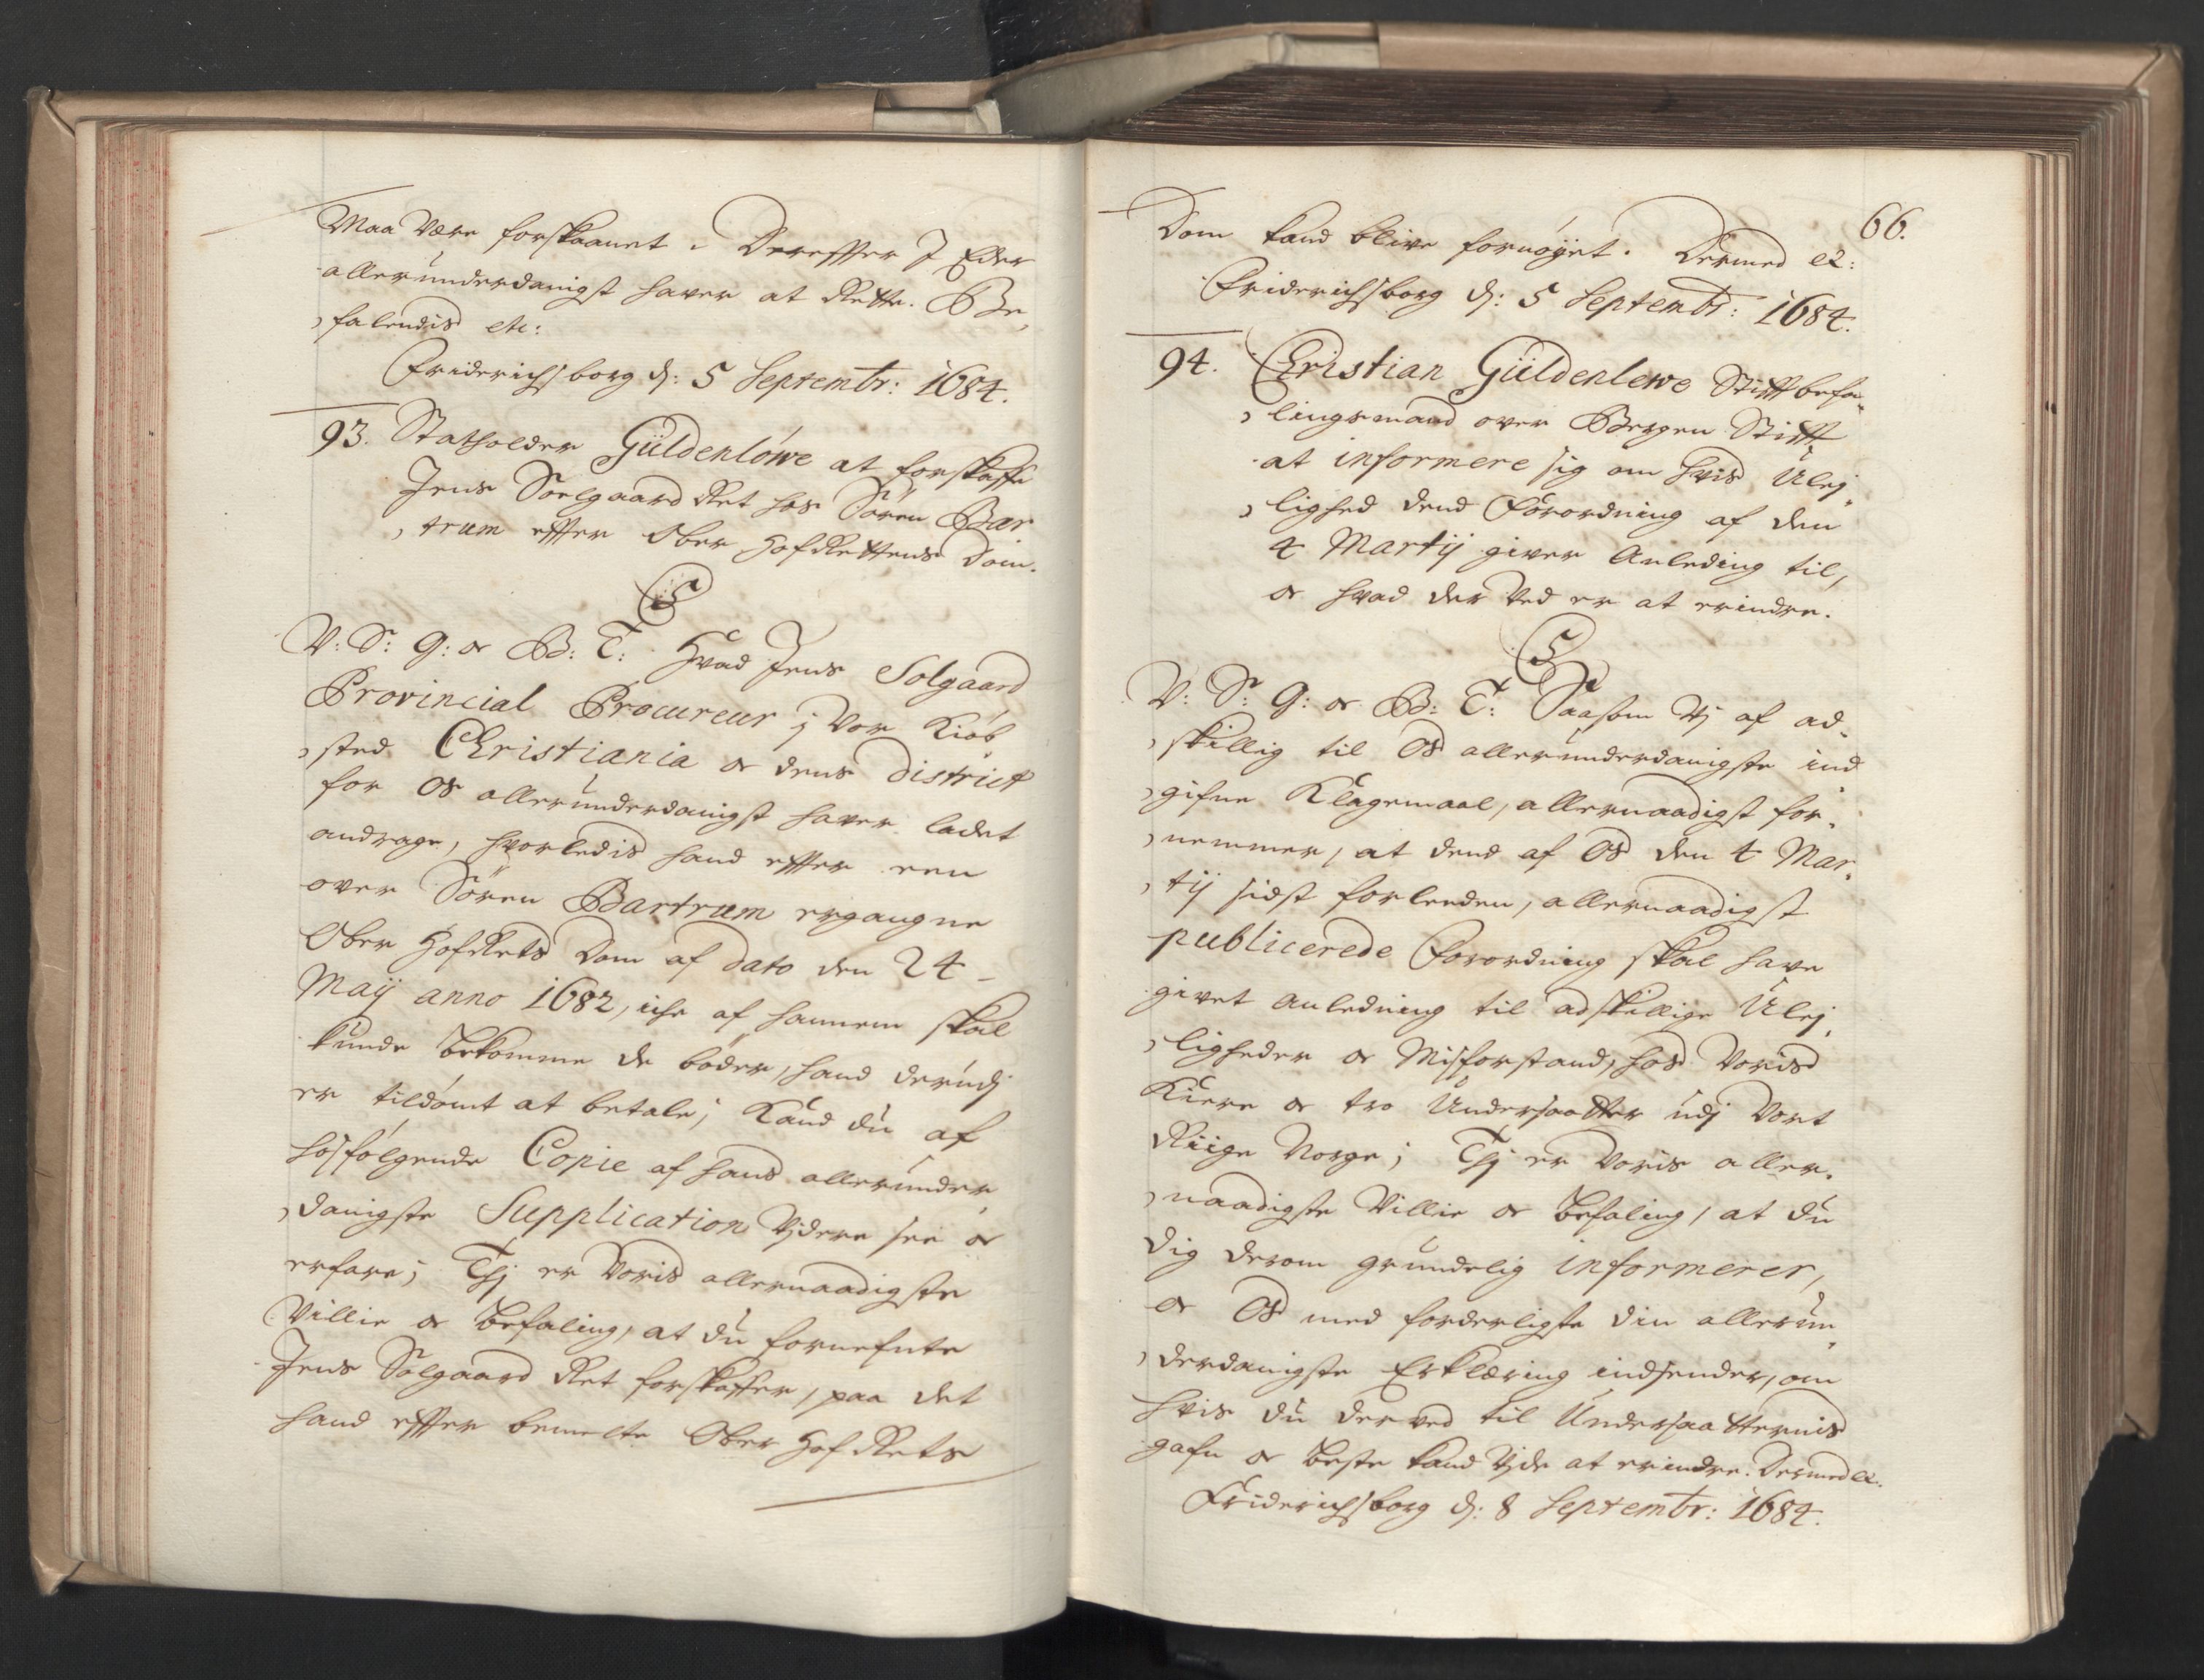 Maa være forskaanet. Dereffter I Eder
allerunderdanigst haver at Rette. Be,
,falendis etc:
Friderichsborg d: 5 Septembr: 1684.
93. Statholder Güldenlöwe at forskaffe
Jens Soelgaard Ret hos Sören Bar
,trum effter Ober HofRettens Dom.
C5
V: S: G: og B: T: Hvad Jens Solgaard
Provincial Procureur j Vor Kiøb
,sted Christiania og dens District
for Os allerunderdanigst haver ladet
andrage, hvorledis hand effter een
over Sören Bartrum ergangne
Ober HofRets Dom af dato den 24
Maij anno 1682, iche af hannem skal
kunde bekomme de bøder, hand derudj
er tildømt at betale; Kand du af
hosfølgende Copie af hans allerunder
,danigste Supplication Vjdere see og
erfare; Thj er Voris allernaadigste
Villie og Befaling, at du fornefnte
Jens Solgaard Ret forskaffer, paa det
hand effter bemelte Ober Hof Rets
66.
Dom kand blive fornøyet. Dermed etc:
Friderichsborg d: 5 Septembr: 1684.
94. Christian Güldenlewe Stifftbefa,
,lingsmand over Bergen Stifft
at informere sig om hvis Ulej,
,lighed dend Forordning af den
4 Martij giver Anleding til,
og hvad der ved er at erindre.
C5
V: S: G: og B: T: Saasom Vj af ad,
,skillig til Os allerunderdanigste ind
,gifne Klagemaal, allernaadigst for,
,nemmer, at dend af Os den 4 Mar,
,tij sidst forleeden, allernaadigst
publicerede Forordning skal have
givet anledning til adskillige Ulej,
,ligheder og Misforstand, hos Voris
Kiere og tro Undersaatter udj Vort
Riige Norge; Thj er Voris aller,
,naadigste Villie og Befaling, at du
dig derom grundelig informerer,
og Os med forderligste din allerun
,derdanigste Erklæring indsender, om
hvis du derved til Undersaatternis
gafn og beste kand Vjde at erindre. Dermed etc.
Friderichsborg d: 8 Septembr: 1684.